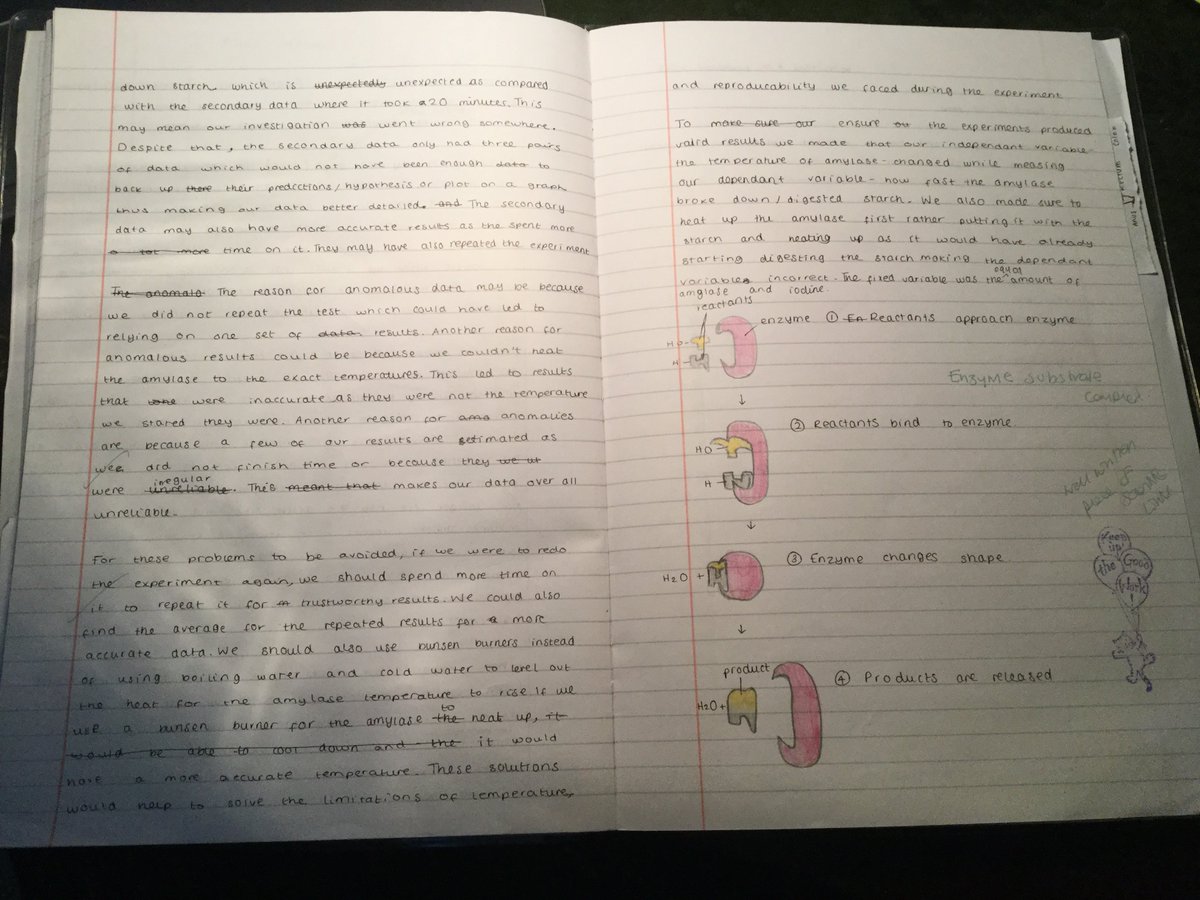 down starch, which is unexpectedly unexpected as compared
with the secondary data where it took a20 minutes. This
may mean our investigation was went wrong somewhere.
Despite that, the secondary data only had three pairs
of data which would not have been enough data to
back up there their predictions/hypothesis or plot on a graph
thus making our data better detailed. and The secondary
data may also have more accurate results as the spent more
a lot more time on it. They may have also repeated the experiment
The anomalo The reason for anomalous data may be because
we did not repeat the test which could have led to
relying on one set of data results. Another reason for
anomalous results could be because we couldn't heat
the amylase to the exact temperatures. This led to results
that were inaccurate as they were not the temperature
we stated they were. Another reason for ano anomalies
are because a few of our results are estimated as
wee did not finish time or because they we ut
were unreliable irregular. This meant that makes our data over all
unreliable.
For these problems to be avoided, if we were to redo
the experiment again, we should spend more time on
it to repeat it for trustworthy results. We could also
find the average for the repeated results for a more
accurate data. We should also use bunsen burners instead
of using boiling water and cold water to level out
the heat for the amylase temperature to rise. If we
use a bunsen burner for the amylase the to heat up, it
would be able to cool down and the it would
have a more accurate temperature. These solutions
would help to solve the limitations of temperature,
and reproducability we faced during the experiment
To make sure our ensure the experiments produced
valid results we made that our independant variable-
the temperature of amylase - changed while measing
our dependant variable - how fast the amylase
broke down/digested starch. We also made sure to
heat up the amylase first rather putting it with the
starch and heating up as it would have already
starting digesting the starch making the dependant
variables incorrect. The fixed variable was the equal amount of
amylase and iodine.
reactants
enzyme ① En Reactants approach enzyme
HO
H
Enzyme substrate
complex
② Reactants bind to enzyme
HO
H
well written
piece of
③ Enzyme changes shape
H2O +
Keep
up
the Good
Work
!
product
④ Products are released
H2O +